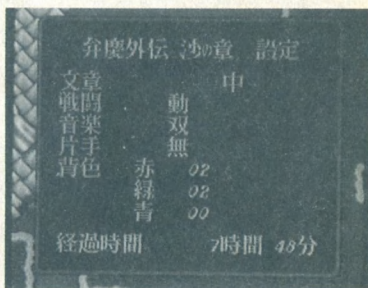 弁慶外伝 沙の章 設定
文章 中
戦闘 動
音楽 双
片手 無
背色 赤 02
緑 02
青 00
経過時間 7時間 48分